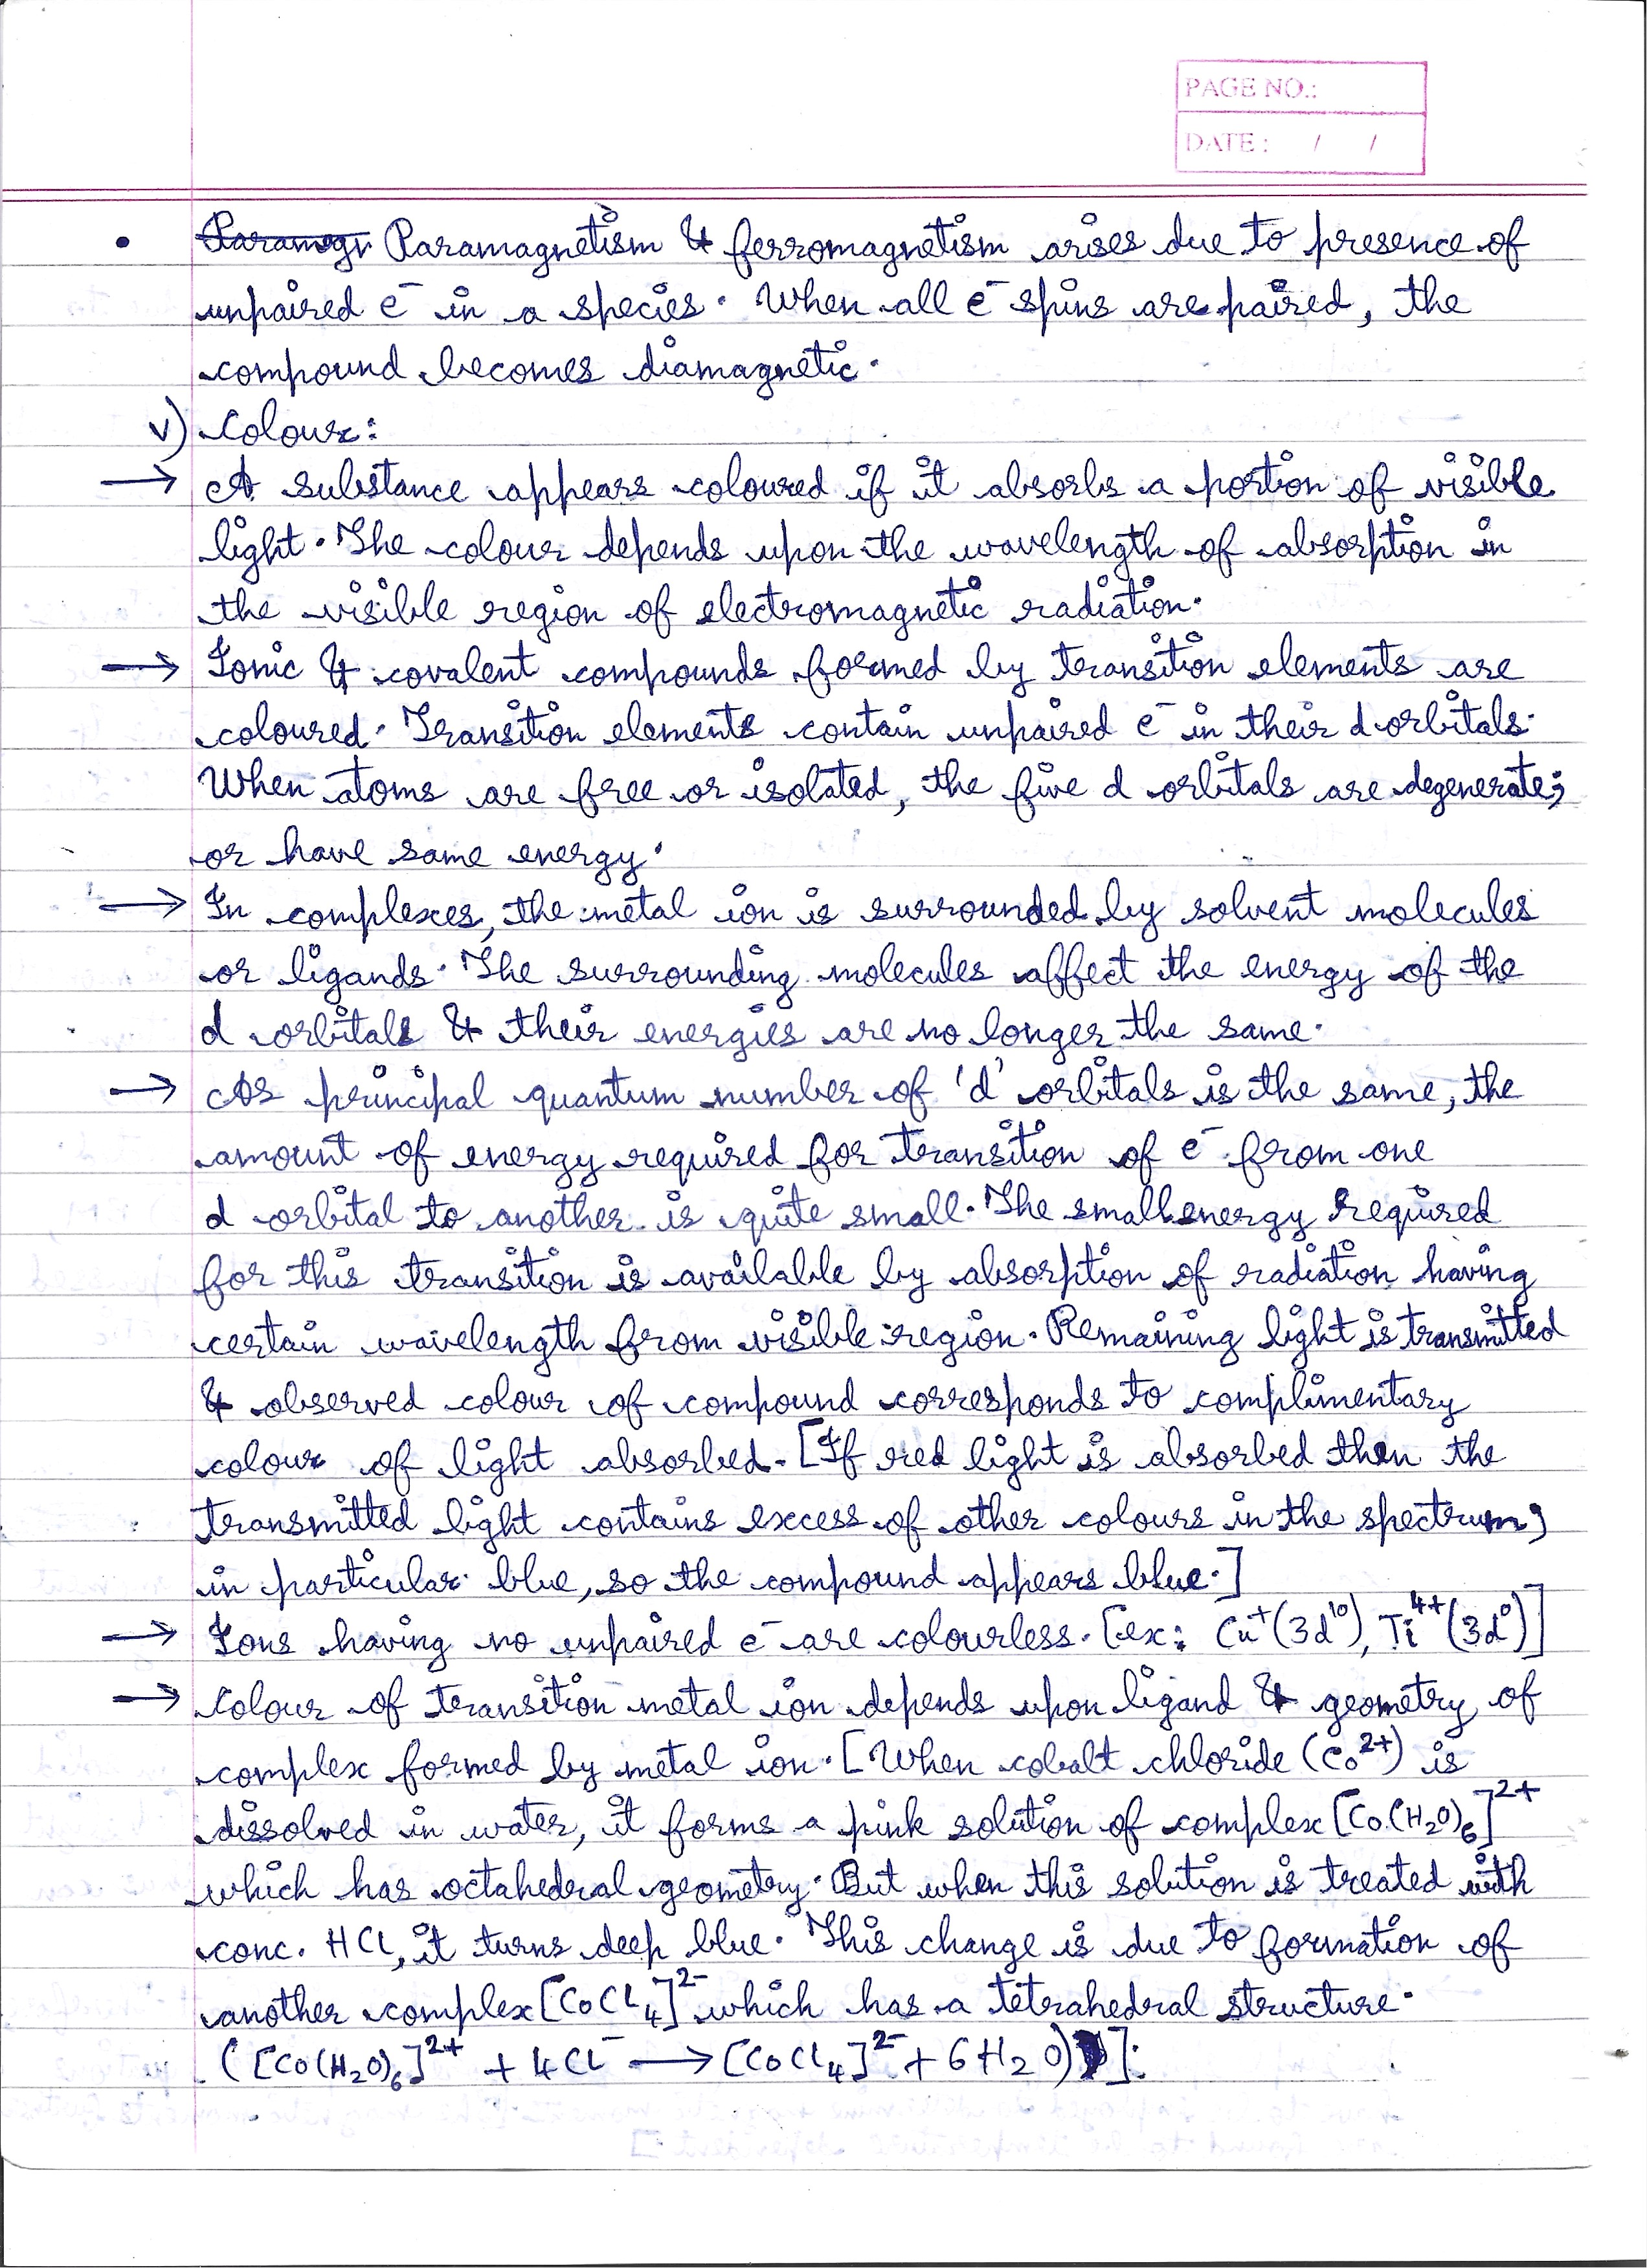 PAGE NO.:
DATE: / /
• Paramagn Paramagnetism & ferromagnetism arises due to presence of
unpaired e⁻ in a species. When all e⁻ spins are paired, the
compound becomes diamagnetic.
v) Colour:
→ A substance appears coloured if it absorbs a portion of visible
light. The colour depends upon the wavelength of absorption in
the visible region of electromagnetic radiation.
→ Ionic & covalent compounds formed by transition elements are
coloured. Transition elements contain unpaired e⁻ in their d orbitals.
When atoms are free or isolated, the five d orbitals are degenerate;
or have same energy.
→ In complexes, the metal ion is surrounded by solvent molecules
or ligands. The surrounding molecules affect the energy of the
d orbitals & their energies are no longer the same.
→ As principal quantum number of 'd' orbitals is the same, the
amount of energy required for transition of e⁻ from one
d orbital to another is quite small. The small energy required
for this transition is available by absorption of radiation having
certain wavelength from visible region. Remaining light is transmitted
& observed colour of compound corresponds to complimentary
colour of light absorbed. [If red light is absorbed then the
transmitted light contains excess of other colours in the spectrum;
in particular blue, so the compound appears blue.]
→ Ions having no unpaired e⁻ are colourless. [ex: Cu⁺(3d¹⁰), Ti⁴⁺(3d⁰)]
→ Colour of transition metal ion depends upon ligand & geometry of
complex formed by metal ion. [When cobalt chloride (Co²⁺) is
dissolved in water, it forms a pink solution of complex [Co(H₂O)₆]²⁺
which has octahedral geometry. But when this solution is treated with
conc. HCl, it turns deep blue. This change is due to formation of
another complex [CoCl₄]²⁻ which has a tetrahedral structure.
([Co(H₂O)₆]²⁺ + 4Cl⁻ → [CoCl₄]²⁻ + 6H₂O)].